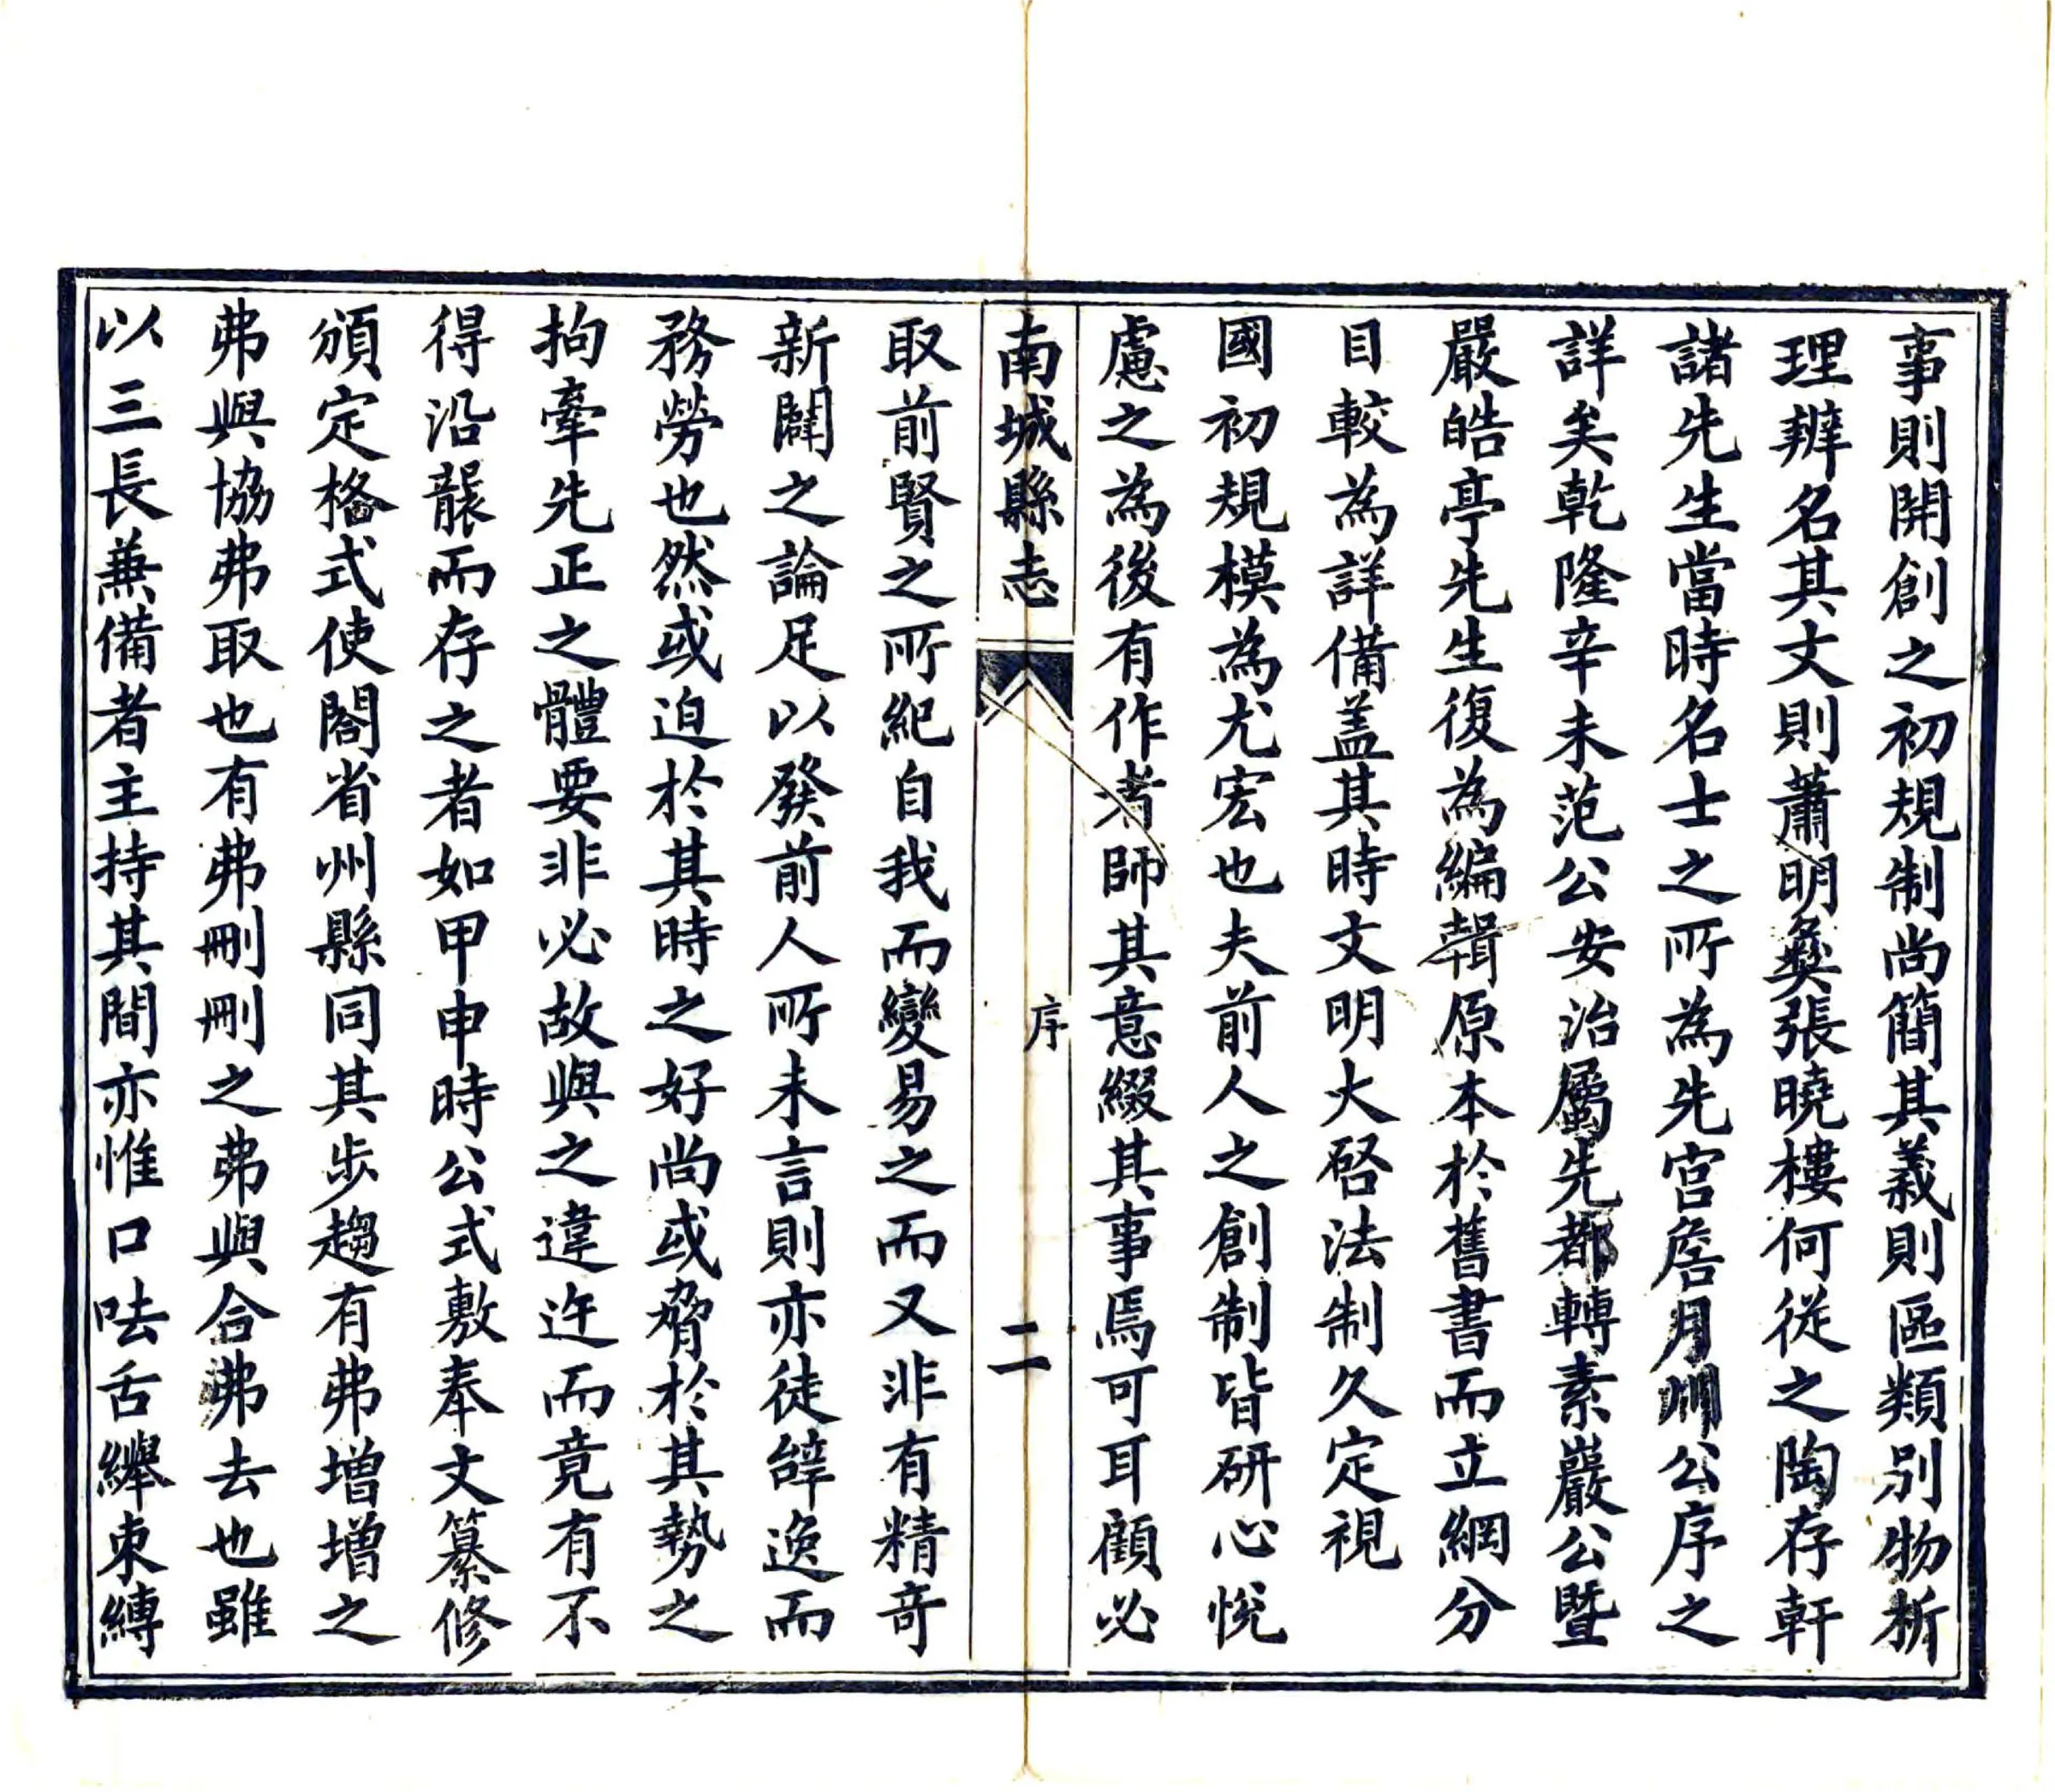 事則開創之初規制尚簡其義則區類別物析
理辨名其文則蕭明彝張曉樓何從之陶存軒
諸先生當時名士之所為先宮詹月川公序之
詳矣乾隆辛未范公安治屬先都轉素巖公暨
嚴皓亭先生復為編輯原本於舊書而立綱分
目較為詳備蓋其時文明大啓法制久定視
國初規模為尤宏也夫前人之創制皆研心悅
慮之為後有作者師其意綴其事焉可耳顧必
南城縣志
序
二
取前賢之所紀自我而變易之而又非有精奇
新闢之論足以發前人所未言則亦徒辭逸而
務勞也然或迫於其時之好尚或脅於其勢之
拘牽先正之體要非必故與之違迕而竟有不
得沿襲而存之者如甲申時公式敷奉文纂修
頒定格式使閤省州縣同其步趨有弗增增之
弗與協弗取也有弗刪刪之弗與合弗去也雖
以三長兼備者主持其間亦惟口呿舌縪束縛